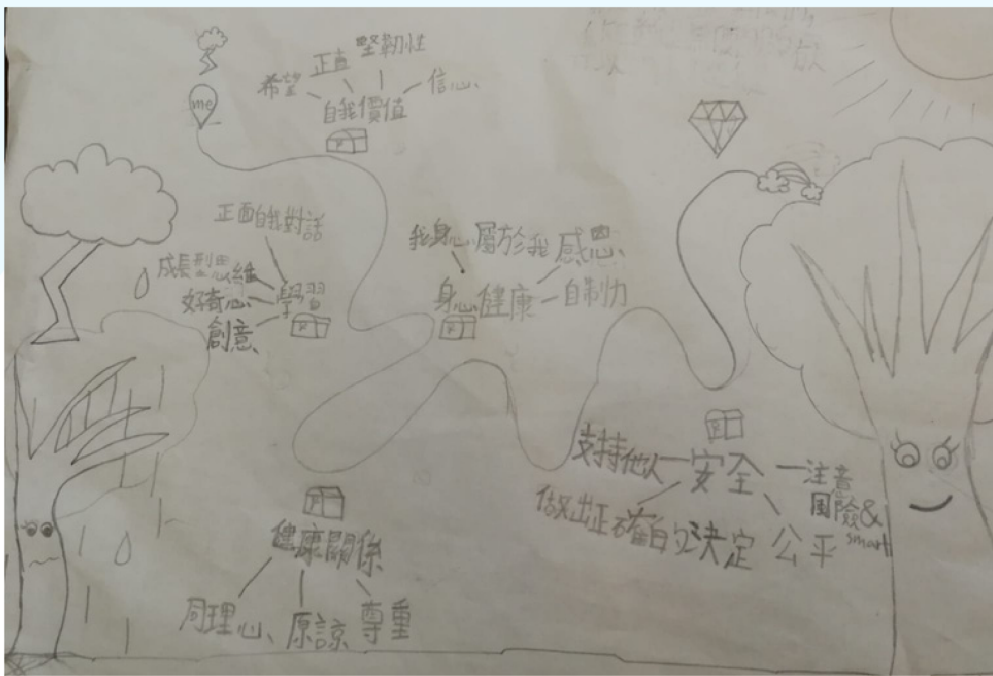 me
正直 堅韌性
希望 信心
自我價值
正面自我對話
成長型思維
好奇心 學習
創意
我身心屬於我 感恩
身心健康 自制力
支持他人 安全 注意
風險&
smart
做出正確的決定 公平
健康關係
同理心 原諒 尊重